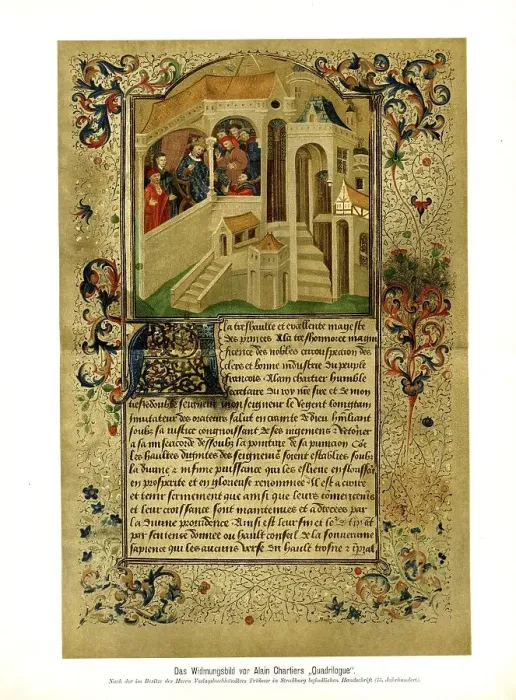 A la treshaulte et excellente mageste
des princes A la treshonnoree magni
ficence des nobles circonspection des
clers et bonne industrie du peuple
francois Alain chartier humble
secretaire du roy nre sire et de mon
tresredoubte seigneur monseigneur le Regent loingtain
Immitateur des orateurs salut en crainte de dieu humiliant
soubz sa iustice congnoissant de ses iugemens et retorner
a sa misericorde dessoubz la pointure de sa punicion Coe
les haultes dignites des seigneuries soient establies soubz
la divine et infinie puissance qui les eslieve en
en prosperite et en glorieuse renommee Il est a croire
et tenir fermement que ainsi que leurs
et leur croissance sont maintenues et adrecees par
la divine providence Ainsi est leur fin et
par sentence donnee ou hault conseil de la souveraine
sapience qui les aucuns verse du hault trosne
Das Widmungsbild vor Alain Chartiers „Quadrilogue".
Nach der im Besitze des Herrn Verlagsbuchhändlers Trübner in Straßburg befindlichen Handschrift (15. Jahrhundert).